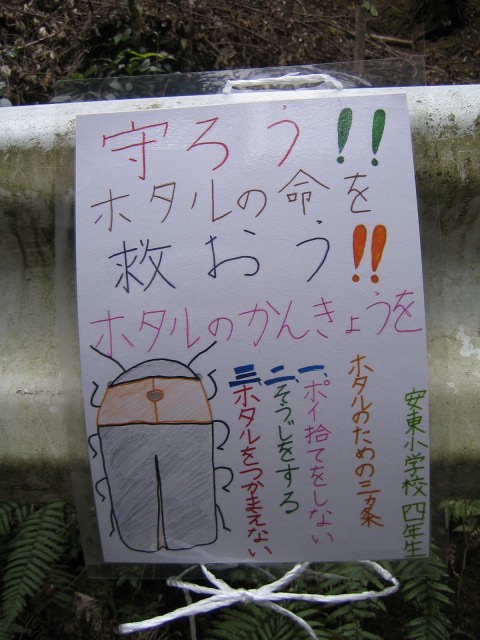 守ろう!!
ホタルの命を
救おう!!
ホタルのかんきょうを
安東小学校四年生
ホタルのための三ヵ条
一、ポイ捨てをしない
二、そうじをする
三、ホタルをつかまえない